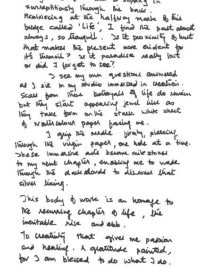 surreptitiously through the base.
Reminiscing at the halfway mark of this
bridge called 'life', I find the past almost
always, so tranquil. Is it perspective
that makes the present more evident for
its turmoil? Is it paradise really lost
or did I forget to see?
I see my own questions answered
as I sit in my studio immersed in creation.
Scars from these betrayals of life do remain
but they start appearing jewel like as
they take form on the stark white sheet
of watercolour paper facing me.
I grip the needle firmly, piercing
through the virgin paper, one hole at a time.
These innumerable become
to my next chapter, enabling me to wade
through the dark clouds to discover that
silver lining.
This body of work is an homage to
the recurring chapters of life, its
inevitable rise and ebb.
To creativity that gives me passion
and healing. A gratitude painted,
for I am blessed to do what I do.